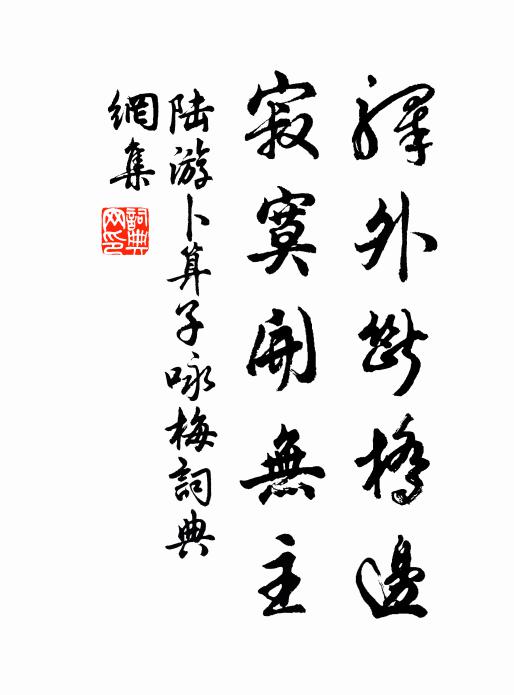 驛外斷橋邊
寂寞開無主
陆游卜算子咏梅詞典
網集
詞典网印